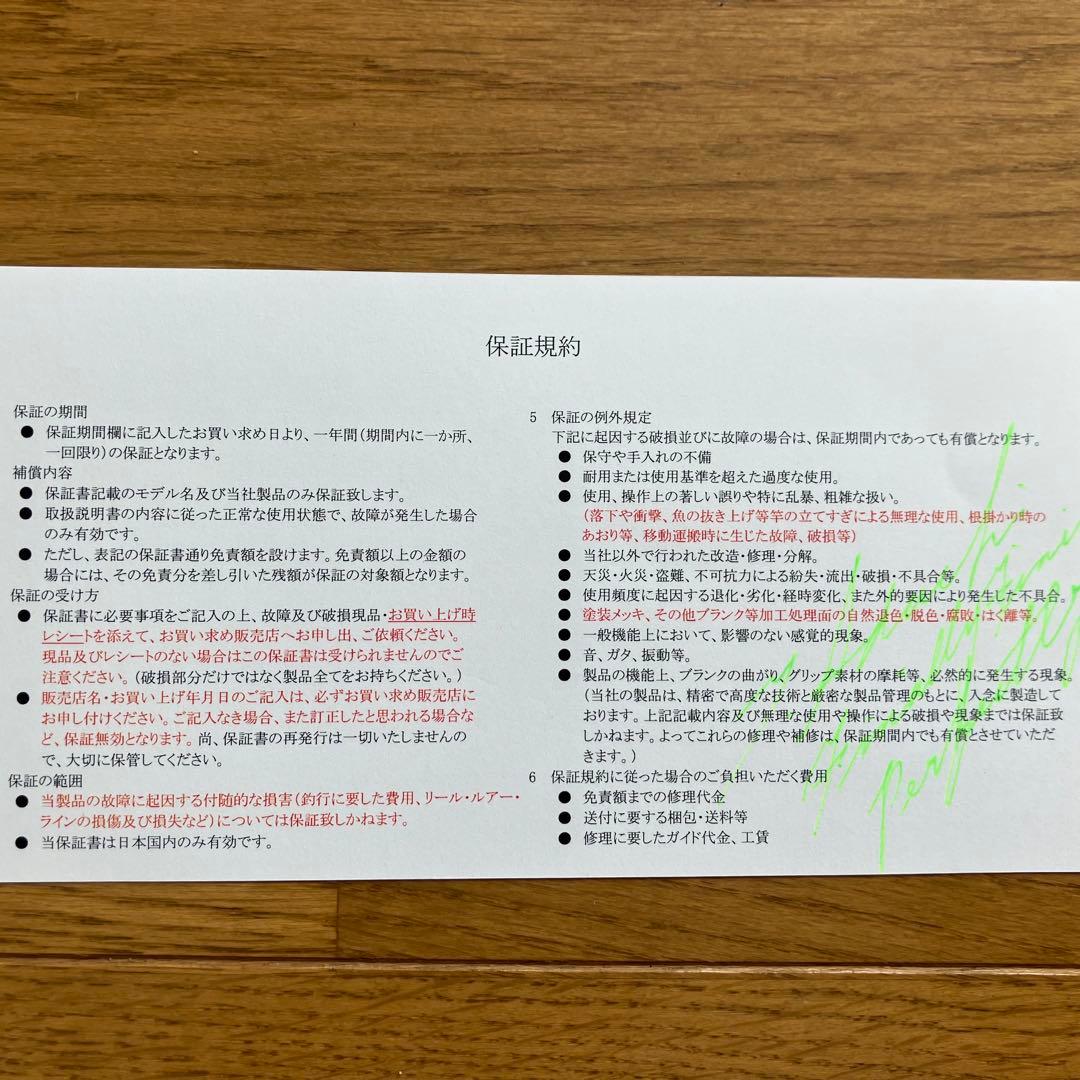 保証規約
保証の期間
● 保証期間欄に記入したお買い求め日より、一年間（期間内に一か所、
一回限り）の保証となります。
補償内容
● 保証書記載のモデル名及び当社製品のみ保証致します。
● 取扱説明書の内容に従った正常な使用状態で、故障が発生した場合
のみ有効です。
● ただし、表記の保証書通り免責額を設けます。免責額以上の金額の
場合には、その免責分を差し引いた残額が保証の対象額となります。
保証の受け方
● 保証書に必要事項をご記入の上、故障及び破損現品・お買い上げ時
レシートを添えて、お買い求め販売店へお申し出、ご依頼ください。
現品及びレシートのない場合はこの保証書は受けられませんのでご
注意ください。（破損部分だけではなく製品全てをお持ちください。）
● 販売店名・お買い上げ年月日のご記入は、必ずお買い求め販売店に
お申し付けください。ご記入なき場合、また訂正したと思われる場合な
ど、保証無効となります。尚、保証書の再発行は一切いたしませんの
で、大切に保管してください。
保証の範囲
● 当製品の故障に起因する付随的な損害（釣行に要した費用、リール・ルアー・
ラインの損傷及び損失など）については保証致しかねます。
● 当保証書は日本国内のみ有効です。
5 保証の例外規定
下記に起因する破損並びに故障の場合は、保証期間内であっても有償となります。
● 保守や手入れの不備
● 耐用または使用基準を超えた過度な使用。
● 使用、操作上の著しい誤りや特に乱暴、粗雑な扱い。
（落下や衝撃、魚の抜き上げ等竿の立てすぎによる無理な使用、根掛かり時の
あおり等、移動運搬時に生じた故障、破損等）
● 当社以外で行われた改造・修理・分解。
● 天災・火災・盗難、不可抗力による紛失・流出・破損・不具合等。
● 使用頻度に起因する退化・劣化・経時変化、また外的要因により発生した不具合。
● 塗装メッキ、その他ブランク等加工処理面の自然退色・脱色・腐敗・はく離等。
● 一般機能上において、影響のない感覚的現象。
● 音、ガタ、振動等。
● 製品の機能上、ブランクの曲がり、グリップ素材の摩耗等、必然的に発生する現象。
（当社の製品は、精密で高度な技術と厳密な製品管理のもとに、入念に製造して
おります。上記記載内容及び無理な使用や操作による破損や現象までは保証致
しかねます。よってこれらの修理や補修は、保証期間内でも有償とさせていただ
きます。）
6 保証規約に従った場合のご負担いただく費用
● 免責額までの修理代金
● 送付に要する梱包・送料等
● 修理に要したガイド代金、工賃